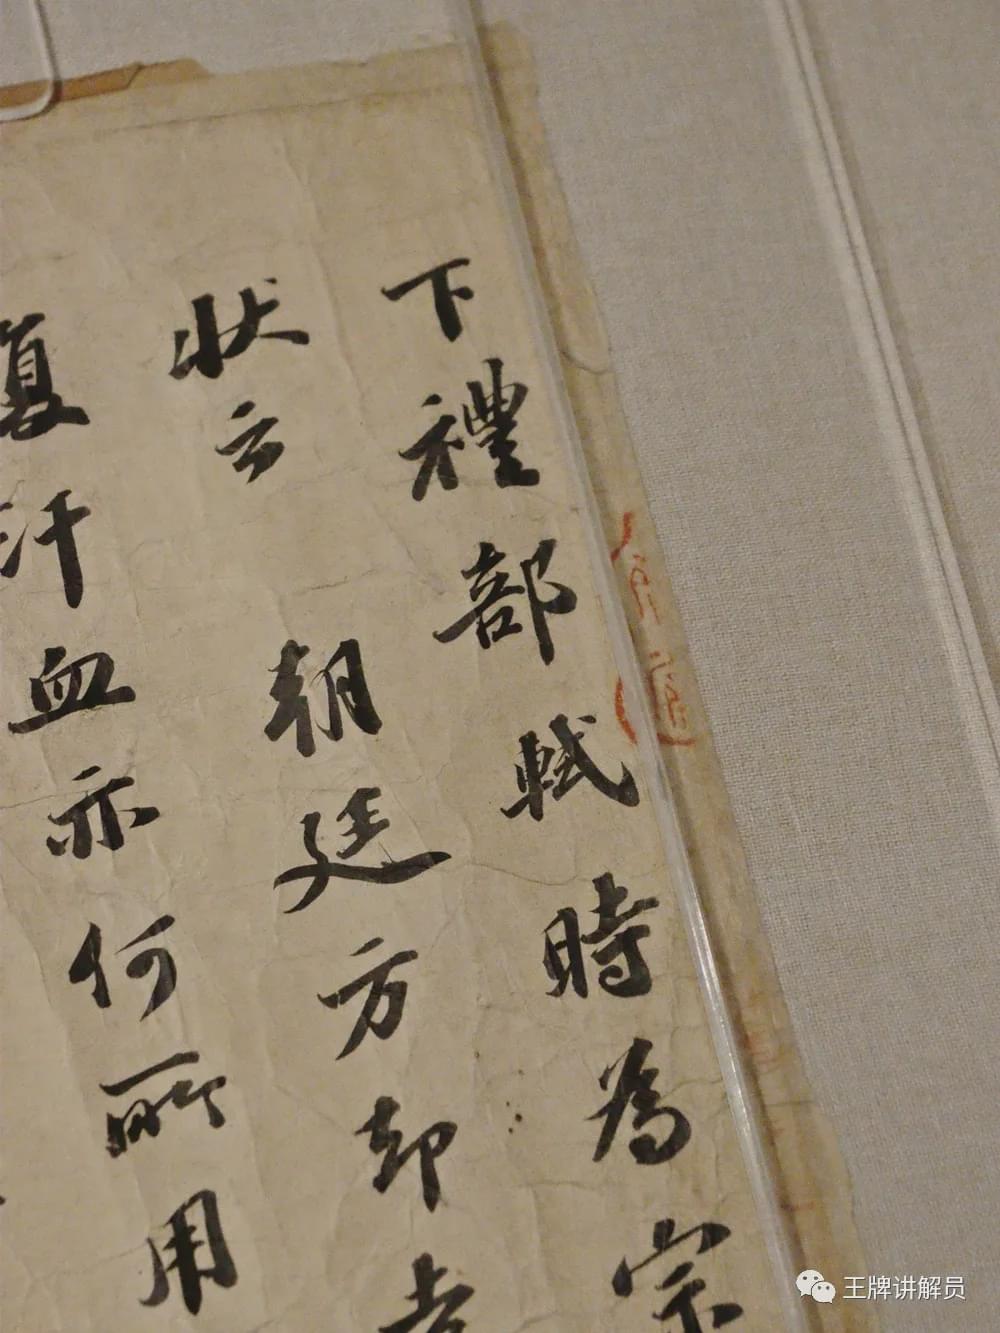 下禮部軾時為宗
状云 朝廷方却走
復汗血亦何所用
王牌讲解员